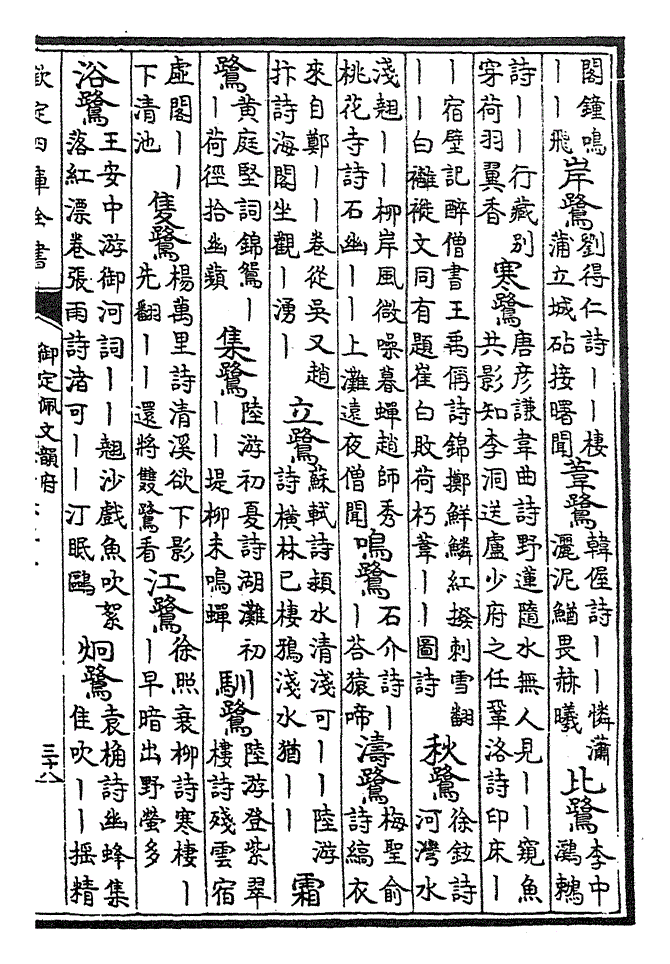 閣鐘鳴丨丨飛 岸鷺 劉得仁詩丨丨棲蒲立城砧接曙聞 葦鷺 韓偓詩丨丨憐瀟灑泥鰌畏赫曦 比鷺 李中鸂鶒
詩丨丨行藏别穿荷羽翼香 寒鷺 唐彥謙韋曲詩野蓮隨水無人見丨丨窺魚共影知李洞送盧少府之任鞏洛詩印床丨
丨宿壁記醉僧書王禹偁詩錦擲鮮鱗紅撥刺雪翻丨丨白䙰褷文同有題崔白敗荷朽葦丨丨圖詩 秋鷺 徐鉉詩河灣水
淺翹丨丨柳岸風微噪暮蟬趙師秀桃花寺詩石幽丨丨上灘遠夜僧聞 鳴鷺 石介詩丨丨荅猿啼 濤鷺 梅聖俞詩縞衣
來自鄭丨丨卷從吳又趙抃詩海閣坐觀丨湧丨 立鷺 蘇軾詩潁水清淺可丨丨陸游詩橫林已棲鴉淺水猶丨丨 霜
鷺 黄庭堅詞錦鴛丨丨荷徑拾幽蘋 集鷺 陸游初憂詩湖灘初丨丨堤柳未鳴蟬 馴鷺 陸游登紫翠樓詩殘雲宿
虛閣丨丨下清池 隻鷺 楊萬里詩清溪欲下影先翻丨丨還將雙鷺看 江鷺 徐照衰柳詩寒棲丨丨早暗出野螢多
浴鷺 王安中游御河詞丨丨翹沙戲魚吹絮落紅漂卷張雨詩渚可丨丨汀眠鷗 炯鷺 袁桷詩幽蜂集隹吹丨丨揺精
欽定四庫全書
御定佩文韻府
三十八